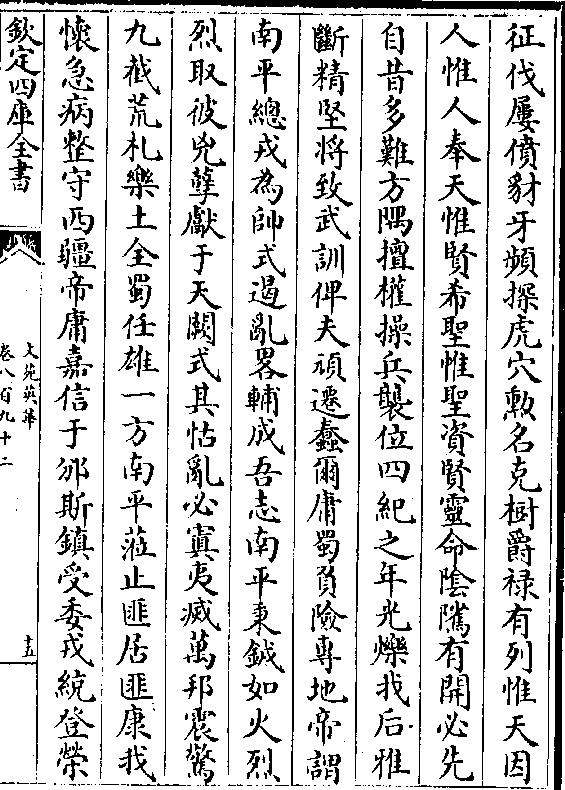 征伐屢僨豺牙頻探虎穴勲名克樹爵祿有列惟天因
人惟人奉天惟賢希聖惟聖資賢靈命隂隲有開必先
自昔多難方隅擅權操兵襲位四紀之年光爍我后雅
斷精堅将致武訓俾夫頑遷蠢爾庸蜀負險專地帝謂
南平總戎為帥式遏亂畧輔成吾志南平秉鉞如火烈
烈取彼兇孽獻于天闕式其怙亂必寘夷㓕萬邦震驚
九截荒札樂土全蜀任雄一方南平蒞止匪居匪康我
懷急病整守西疆帝庸嘉信于邠斯鎮受委戎統登榮
欽定四庫全書
文苑英華
卷八百九十二
十五